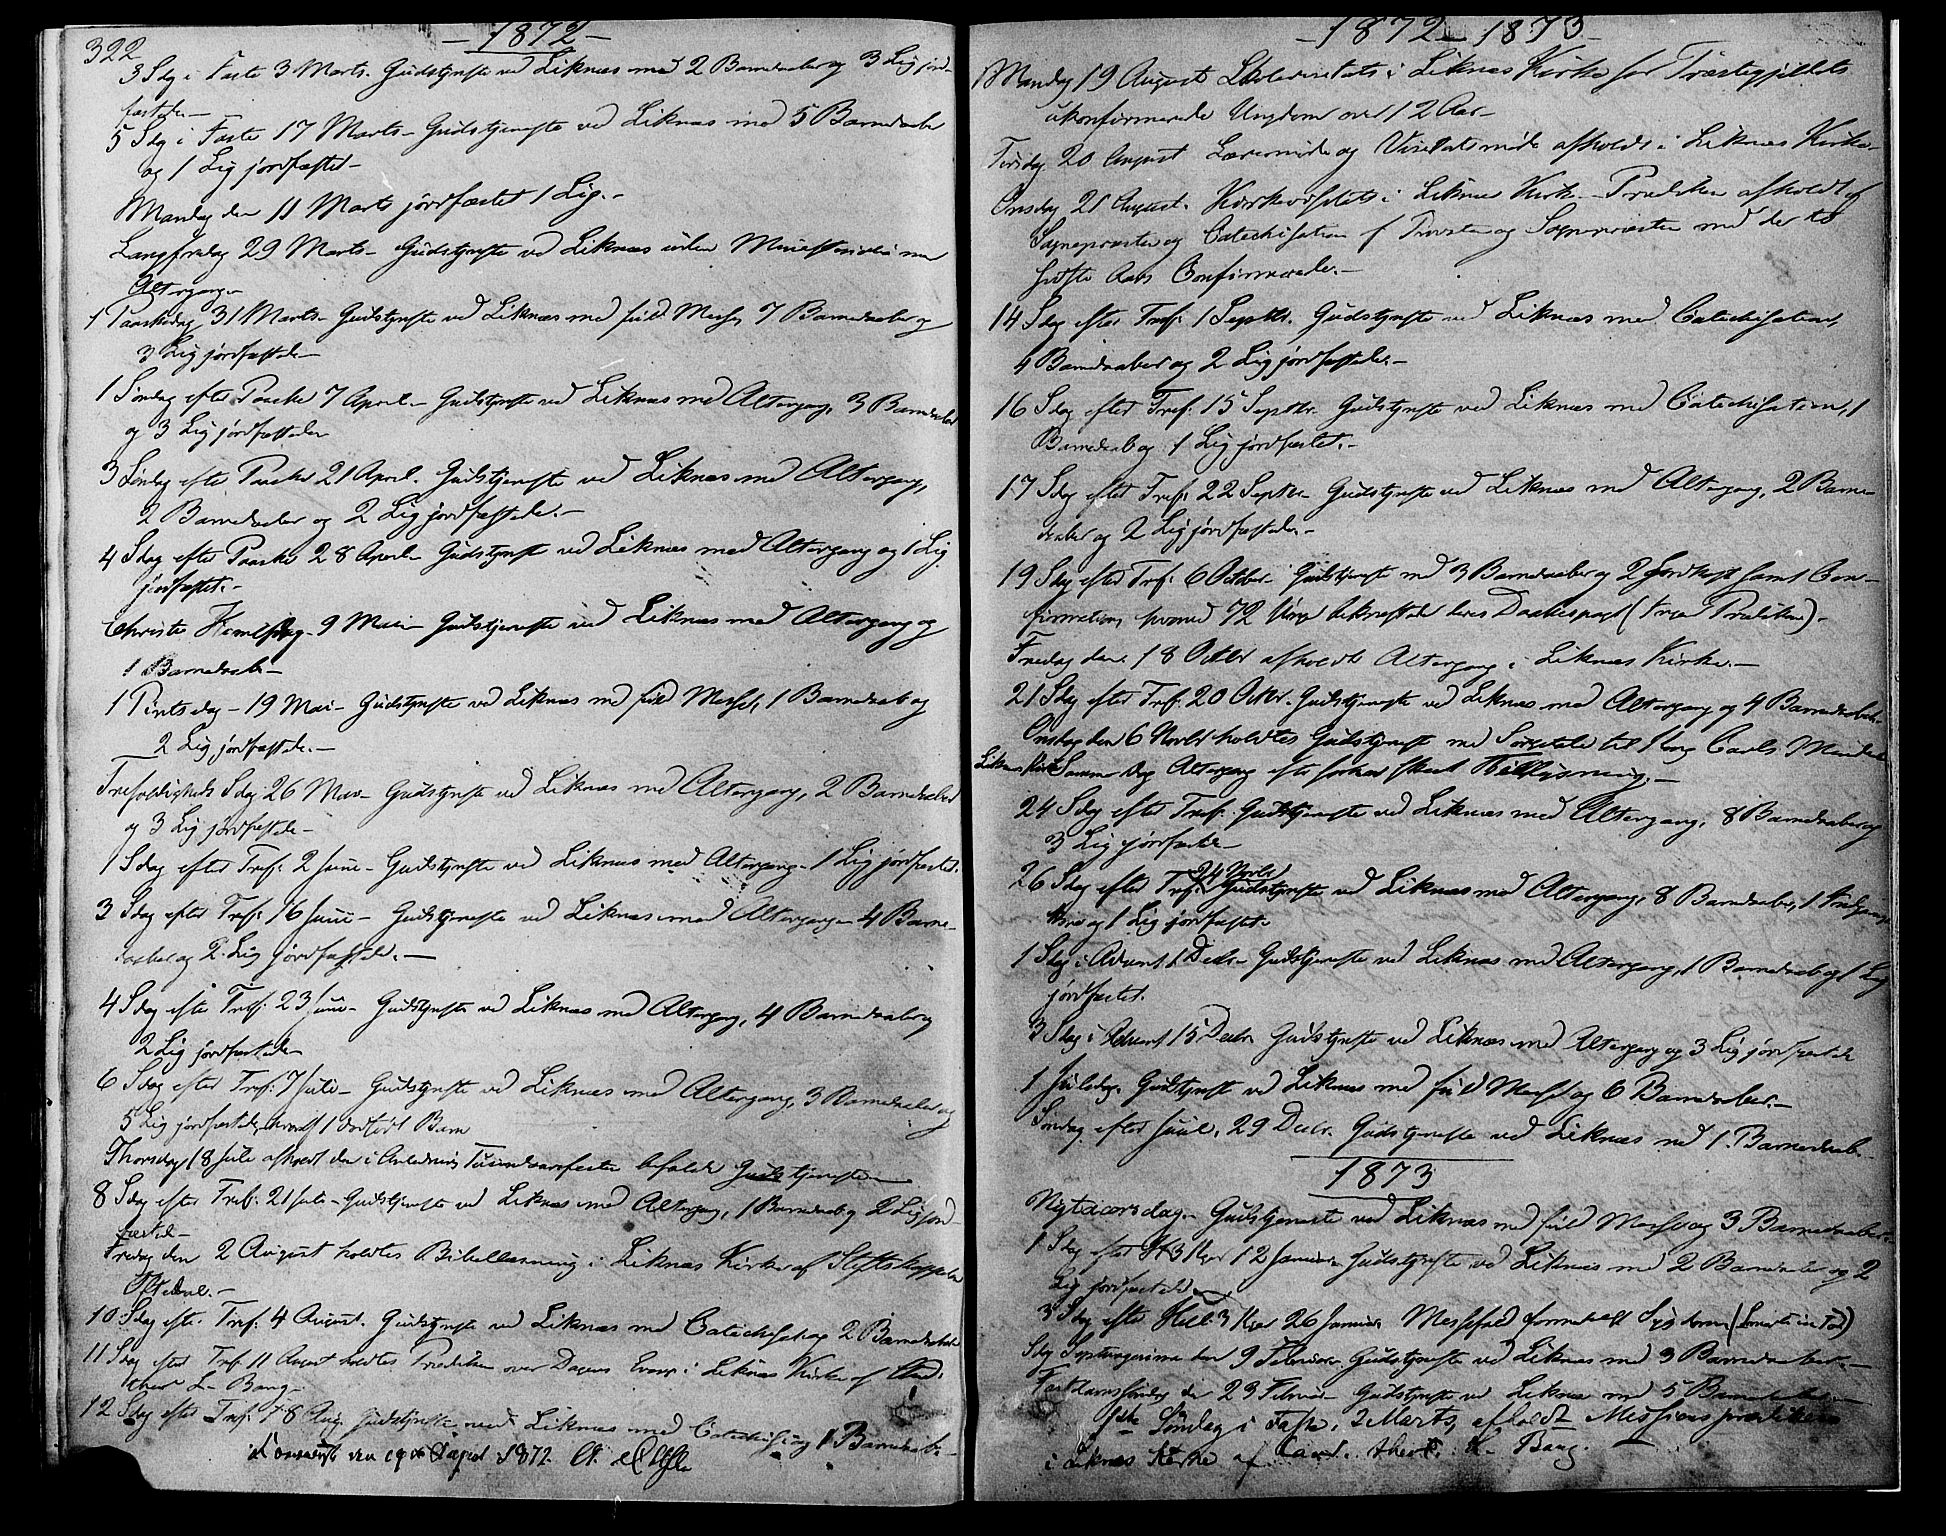 322
- 1872 -
3 Sdg i Faste 3 Marts. Gudstjneste ved Liknæs med 2 Barnedaab og 3 Lig jord-
fæstede -
5 Sdg i Faste 17 Marts - Gudstjeneste ved Liknæs med 5 Barnedaab
og 1 Lig jordfæstet -
Mandag den 11 Marts jordfæstet 1 Lig. -
Langfredag 29 Marts - Gudstjneste ved Liknæs uden
Altergang -
1 Paaskedag 31 Marts - Gudstjneste ved Liknæs med fuld Messe, 7 Barnedaab og
3 Lig jordfæstede -
1 Søndag efter Paaske 7 April - Gudstjneste ved Liknæs med Altergang, 3 Barnedaab
og 3 Lig jordfæstede
3 Søndag efter Paaske 21 April. Gudstjeneste ved Liknæs med Altergang,
2 Barnedaab og 2 Lig jordfæstede. -
4 Sdag efter Paaske 28 April - Gudstjneste ved Liknæs med Altergang og 1 Lig
jordfæstet. -
Christi Himmelfartsdag - 9 Mai - Gudstjeneste ved Liknæs med Altergang og
1 Barnedaab -
1 Pintsdag - 19 Mai - Gudstjneste ved Liknæs med fuld Messe, 1 Barnedaab og
2 Lig jordfæstede. -
Trefoldigheds Sdag 26 Mai - Gudstjneste ved Liknæs med Altergang, 2 Barnedaab
og 3 Lig jordfæstede -
1 Sdag efter Tref: 2 Juni - Gudstjneste ved Liknæs med Altergang - 1 Lig jordfæstet.
3 Sdag efter Tref: 16 Juni - Gudstjeneste ved Liknæs med Altergang - 4 Barne-
daab og 2 Lig jordfæstede. -
4 Sdag efter Tref: 23 Juni - Gudstjneste ved Liknæs med Altergang, 4 Barnedaab og
2 Lig jordfæstede -
6 Sdag efter Tref: 7 Juli - Gudstjneste ved Liknæs med Altergang, 3 Barnedaab og
5 Lig jordfæstede, hvoraf 1 dødfødt Barn
Thorsdag 18 Juli afholdt den i Anledning Tusindaarsfesten befalede Gudstjeneste -
8 Sdag efter Tref: 21 Juli - Gudstjeneste ved Liknæs med Altergang, 1 Barnedaab og 2 Lig jord-
fæstede -
Fredag den 2 August holdtes Bibellæsning i Liknæs Kirke af Stiftskappelan
Oftedal. -
10 Sdag efter Tref: 4 August. Gudstjneste ved Liknæs med Catechis. og 2 Barnedaab
11 Sdag efter Tref. 11 August holdtes Prædiken over Dagens Evang: i Liknæs Kirke af Cand.
theol L. Bang -
12 Sdag efter Tref: 18 Aug. Gudstjneste ved Liknæs med Catechising 1 Barnedaab -
den 19 August 1872.
- 1872 - 1873 -
Mandag 19 August Skolevisitats i Liknæs Kirke for Præstegjeldets
ukonfirmerede Ungdom over 12 Aar -
Tirsdag 20 August Lærermøde og Visitatsmøde afholdt i Liknæs Kirke -
Onsdag 21 August. Kirkevisitats i Liknæs Kirke - Prædiken afholdt af
Sognepræsten og Catechisation af Provsten og Sognepræsten med de to
sidste Aars Confirmerede. -
14 Sdag efter Tref: 1 Septbr. Gudstjneste ved Liknæs med Catechisation,
4 Barnedaab og 2 Lig jordfæstede. -
16 Sdag efter Tref. 15 Septbr. Gudstjneste ved Liknæs med Catechisation, 1
Barnedaab og 1 Lig jordfæstet. -
17 Sdag efter Tref: 22 Septbr - Gudstjneste ved Liknæs med Altergang, 2 Barne-
daab og 2 Lig jordfæstede. -
19 Sdag efter Tref: 6 October - Gudstjeneste med 3 Barnedaab og 2 samt Con-
firmation, hvorved 72 Unge bekræftede deres Daabespagt (. Prædiken). -
Fredag den 18 Octbr afholdt Altergang i Liknæs Kirke. -
21 Sdag efter Tref. 20 Octbr. Gudstjneste ved Liknæs med Altergang og 4 Barnedaab.
Onsdag den 6 Novbr holdtes Gudstjneste med Sørgetale til Kong Carls Minde
Liknæs Kirke Samme Dag Altergang efter forhen skeet Bellysning. -
24 Sdag efter Tref. Gudstjeneste ved Liknæs med Altergang, 8 Barnedaab og
3 Lig jordfæstede -
26 Sdag efter Tref: 24 Novbr Gudstjeneste ved Liknæs med Altergang, 8 Barnedaab, 1 Indgangs
kone og 1 Lig jordfæstet. -
1 Sdag i Advent 1 Decbr - Gudstjeneste ved Liknæs med Altergang, 1 Barnedaab og 1 Lig
jordfæstet.
3 Sdag i Advent 15 Decbr. Gudstjneste ved Liknæs med Altergang og 3 Lig jordfæstede
1 Juledag. Gudstjneste ved Liknæs med fuld Messe og 6 Barnedaab. -
Søndag efter Juul, 29 Decbr. Gudstjneste ved Liknæs med 1 Barnedaab -
1873
Nytaarsdag - Gudstjeneste ved Liknæs med fuld Messe og 3 Barnedaab -
1 Sdag efter H 3 Kgr 12 Januar - Gudstjneste ved Liknæs med 2 Barnedaab og 2
Lig jordfæstede -
3 Sdag efter Hell. 3 Kgr 26 Januar. Messefald formedelst Sygdom
Sdg Septuagesima den 9 Februar - Gudstjneste ved Liknæs med 3 Barnedaab. -
Fastelavnssøndag den 23 Februar - Gudstjneste ved Liknæs med 5 Barnedaab -
1ste Søndag i Faste, 2 Marts, afholdt Missionsprædiken
i Liknæs Kirke af Cand. theol. L. Bang. -